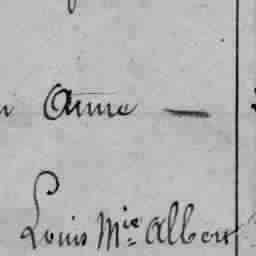 Anne —
Louis Mie Albert